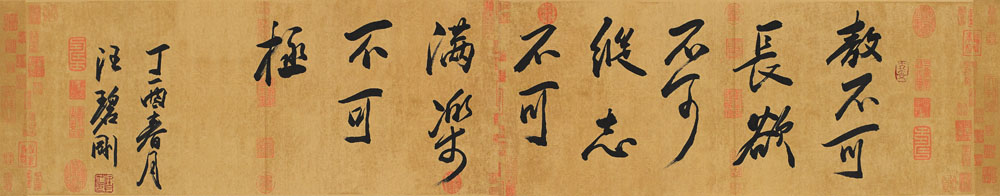 敖不可
長欲
不可
縱志
不可
滿樂
不可
極
丁酉春月
汪碧剛